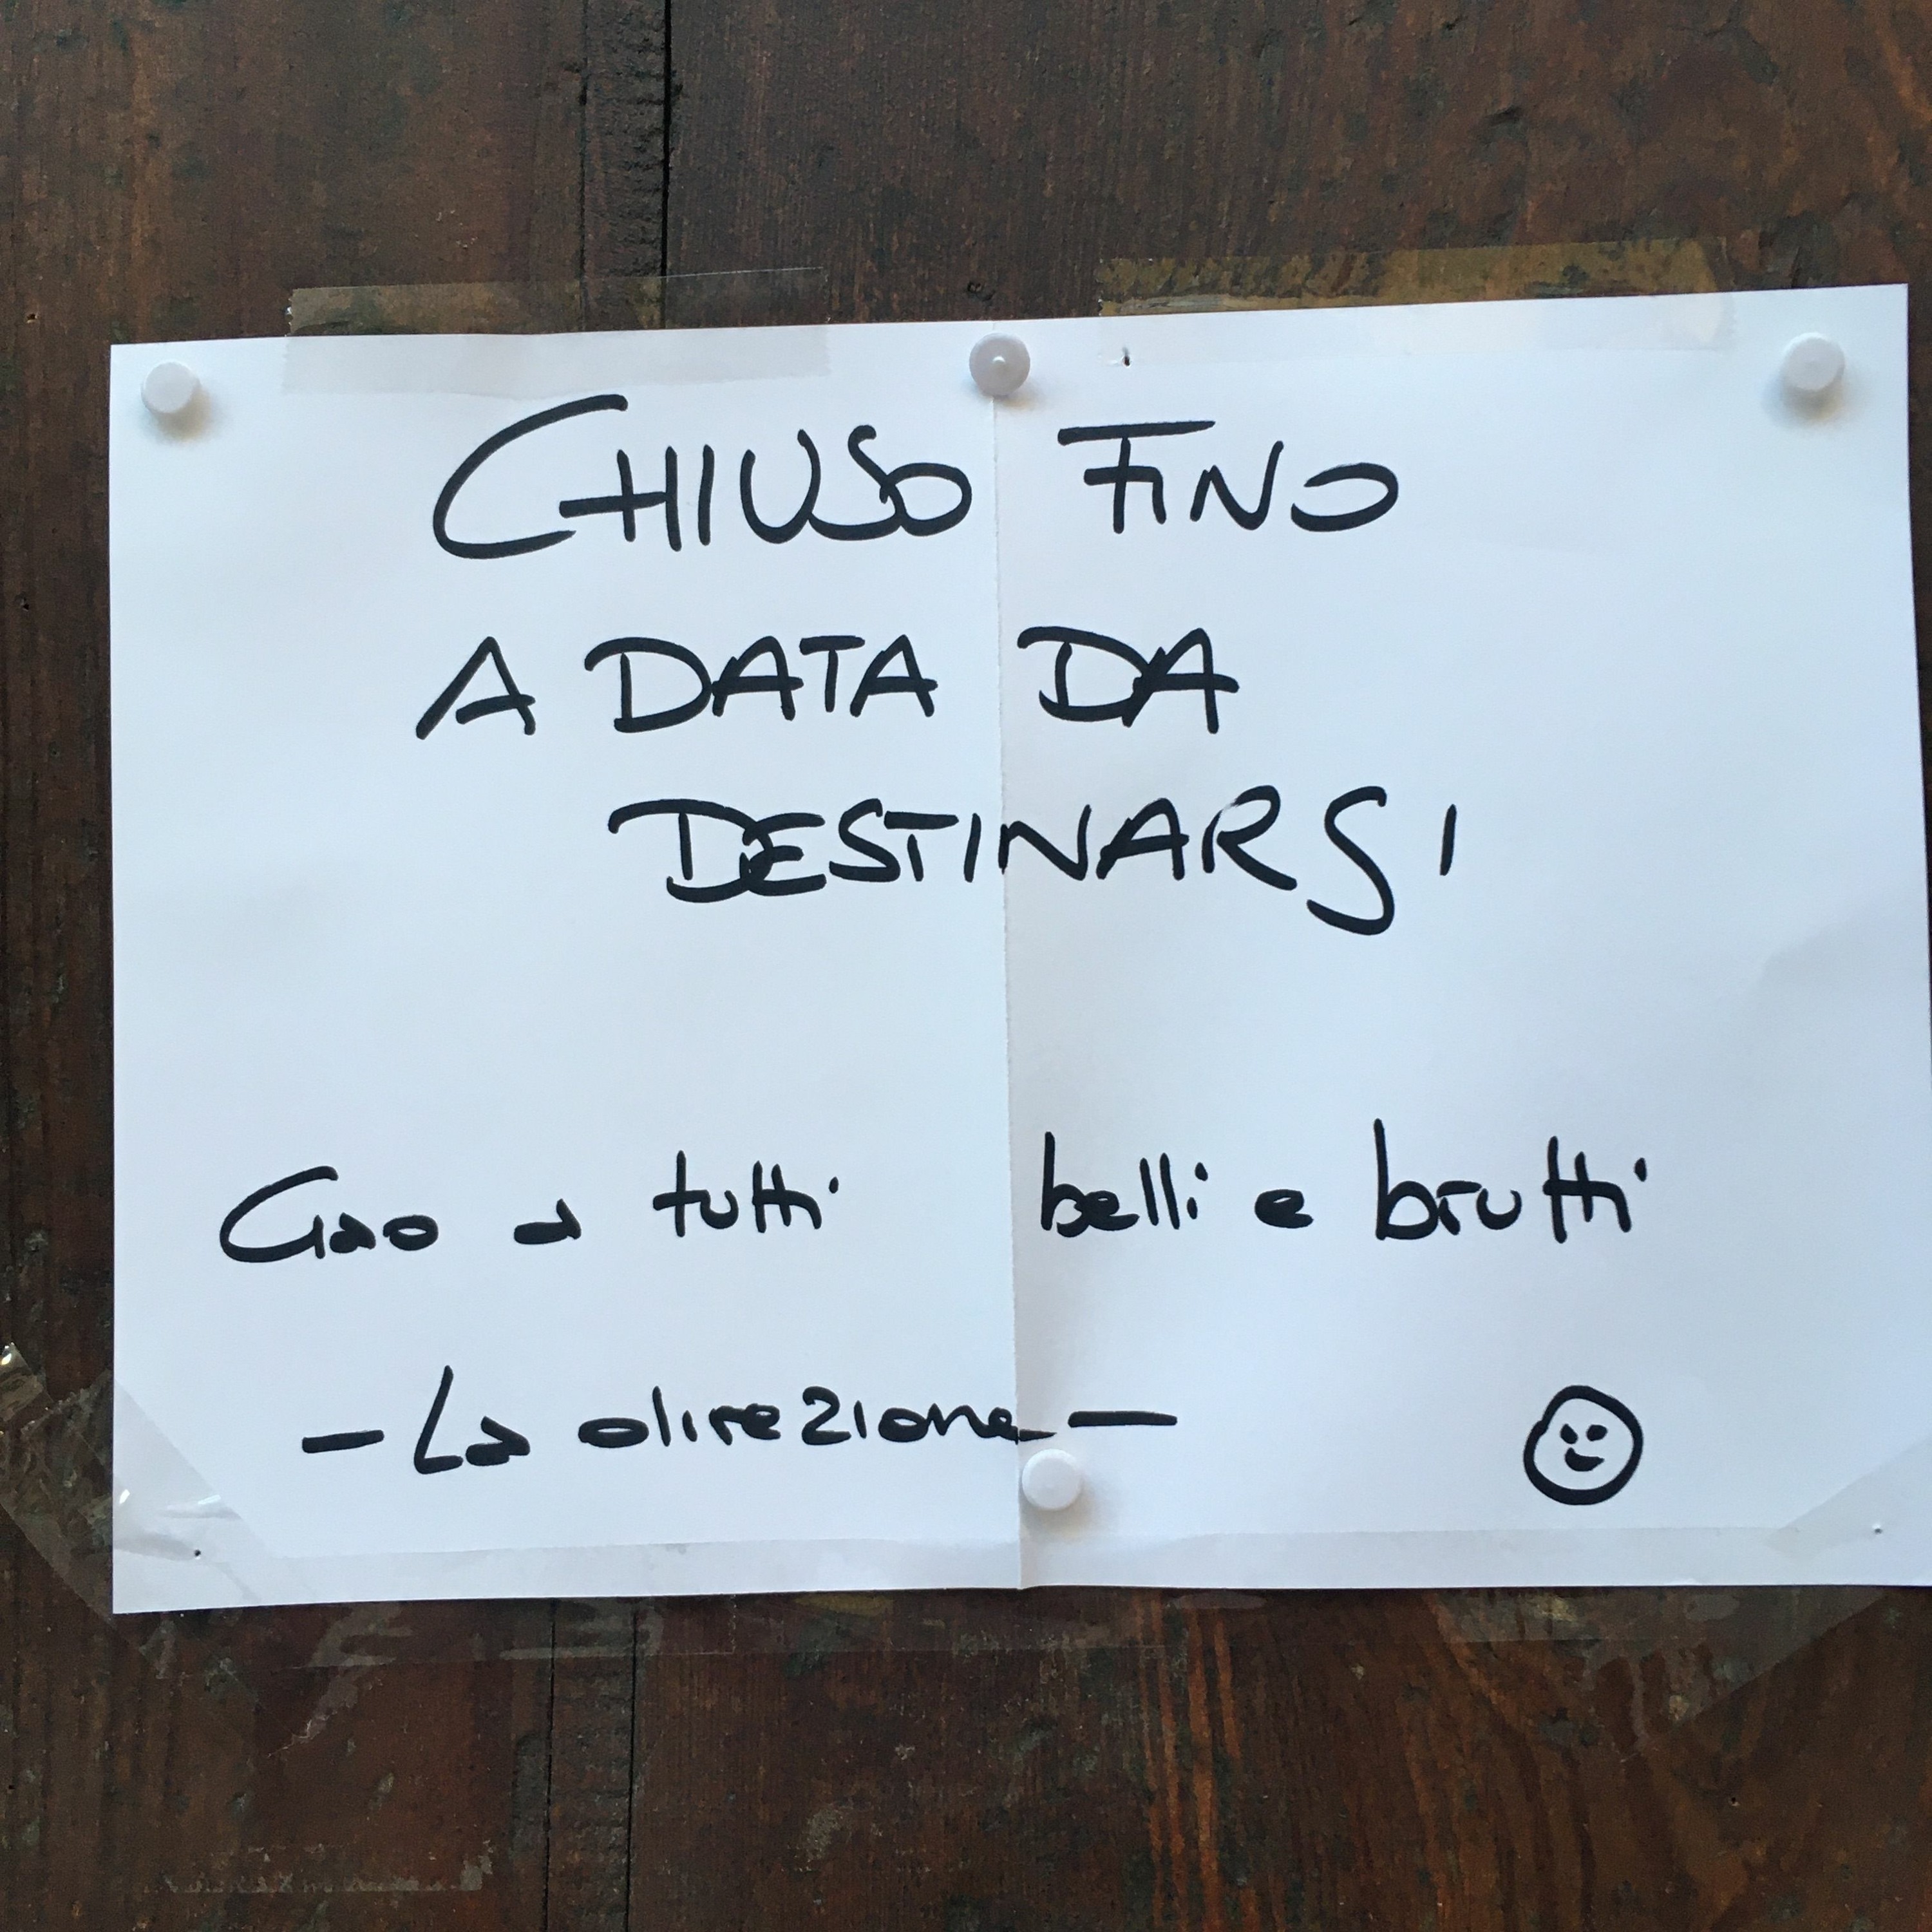 CHIUSO FINO
A DATA DA
DESTINARSI
Ciao a tutti belli e brutti
- La direzione -